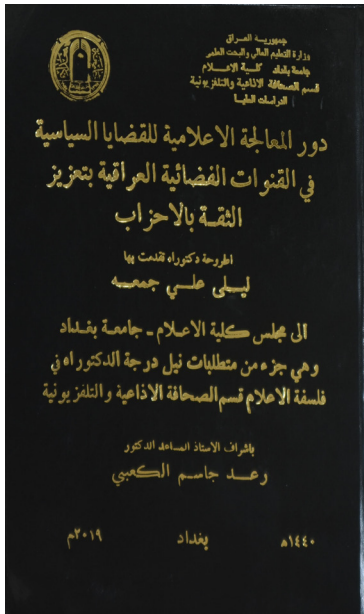 جمهورية العراق
وزارة التعليم العالي والبحث العلمي
جامعة بغداد كلية الاعلام
قسم الصحافة الاذاعية والتلفزيونية
الدراسات العليا
دور المعالجة الاعلامية للقضايا السياسية
في القنوات الفضائية العراقية بتعزيز
الثقة بالاحزاب
اطروحة دكتوراه تقدمت بها
ليلى علي جمعه
الى مجلس كلية الاعلام - جامعة بغداد
وهي جزء من متطلبات نيل درجة الدكتوراه في
فلسفة الاعلام قسم الصحافة الاذاعية والتلفزيونية
باشراف الاستاذ المساعد الدكتور
رعد جاسم الكعبي
١٤٤٠ه بغداد ٢٠١٩م